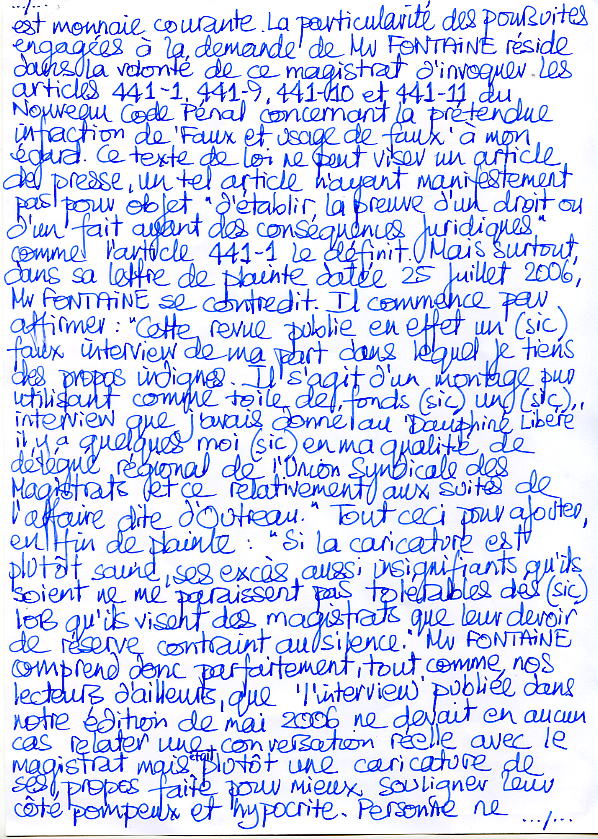 .../...
est monnaie courante. La particularité des poursuites
engagées à la demande de Mr FONTAINE réside
dans la volonté de ce magistrat d'invoquer les
articles 441-1, 441-9, 441-10 et 441-11 du
Nouveau Code Pénal concernant la prétendue
infraction de 'Faux et usage de faux' à mon
égard. Ce texte de loi ne peut viser un article
de presse, un tel article n'ayant manifestement
pas pour objet "d'établir la preuve d'un droit ou
d'un fait ayant des conséquences juridiques"
comme l'article 441-1 le définit. Mais surtout,
dans sa lettre de plainte datée 25 juillet 2006,
Mr FONTAINE se contredit. Il commence par
affirmer : "Cette revue publie en effet un (sic)
faux interview de ma part dans lequel je tiens
des propos indignes. Il s'agit d'un montage pur
utilisant comme toile de fonds (sic) un (sic)
interview que j'avais donné au 'Dauphiné Libéré'
il y a quelques moi (sic) en ma qualité de
délégué régional de l'Union Syndicale des
Magistrats (et ce relativement aux suites de
l'affaire dite d'Outreau." Tout ceci pour ajouter,
en fin de plainte : "Si la caricature est
plutôt saine, ses excès aussi insignifiants qu'ils
soient ne me paraissent pas tolérables dès (sic)
lors qu'ils visent des magistrats que leur devoir
de réserve contraint au silence." Mr FONTAINE
comprend donc parfaitement, tout comme nos
lecteurs d'ailleurs, que 'l'interview' publiée dans
notre édition de mai 2006 ne devait en aucun
cas relater une conversation réelle avec le
magistrat mais était plutôt une caricature de
ses propos faite pour mieux souligner leur
côté pompeux et hypocrite. Personne ne .../...